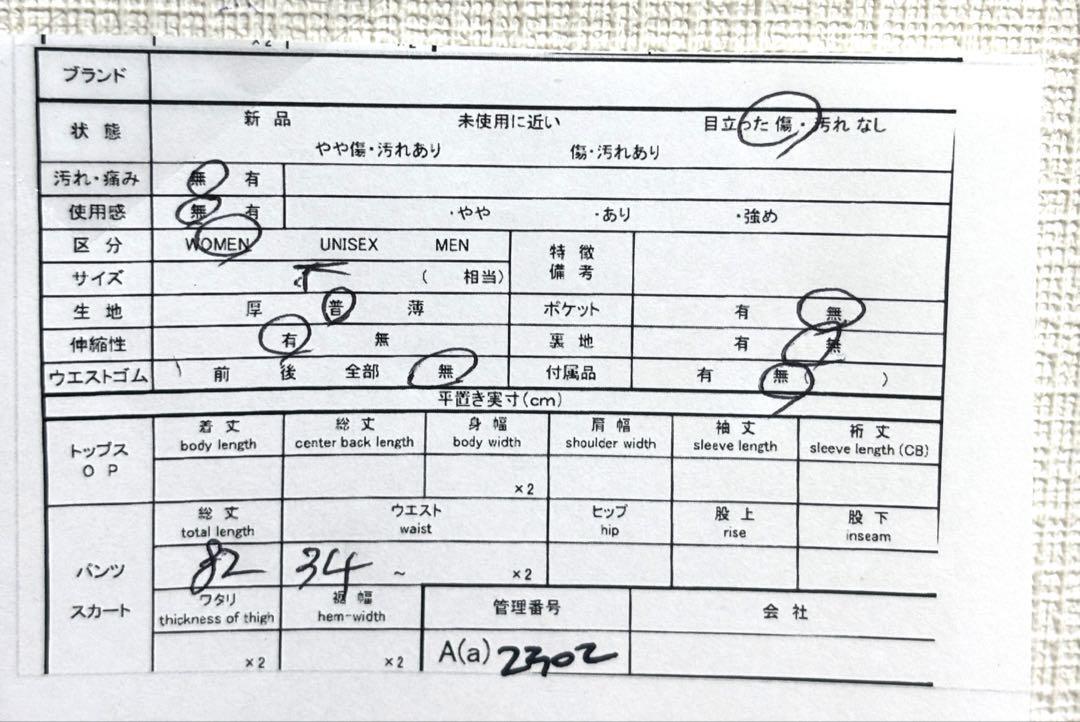 ×2 ×2
ブランド
状態 新品 未使用に近い 目立った傷・汚れなし
やや傷・汚れあり 傷・汚れあり
汚れ・痛み 無 有
使用感 無 有 ・やや ・あり ・強め
区分 WOMEN UNISEX MEN 特徴
備考
サイズ ( 相当)
生地 厚 普 薄 ポケット 有 無
伸縮性 有 無 裏地 有 無
ウエストゴム 前 後 全部 無 付属品 有 無 ( )
平置き実寸(cm)
トップス
OP
着丈 総丈 身幅 肩幅 袖丈 裄丈
body length center back length body width shoulder width sleeve length sleeve length (CB)
×2
パンツ
スカート
総丈 ウエスト ヒップ 股上 股下
total length waist hip rise inseam
82 34 ~ ×2
ワタリ 裾幅 管理番号 会社
thickness of thigh hem-width
×2 ×2 A(a) 2302